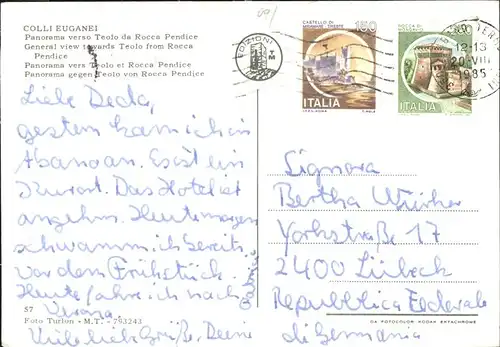 COLLI EUGANEI
Panorama verso Teolo da Rocca Pendice
General view towards Teolo from Rocca
Pendice
Panorama vers Teolo et Rocca Pendice
Panorama gegen Teolo von Rocca Pendice
EDIZIONI
CASTELLO DI
MIRAMARE - TRIESTE
ITALIA
ROCCA DI
ITALIA
12-13
20 VIII
1985
Liebe Deda,
gestern kam ich in
Abano an. Es ist ein
Kurort. Das Hotel ist
angehm. Heute morgen
schwamm ich bereits
vor dem Frühstück.
Heute fahre ich nach
Verona.
Viele liebe Grüße, Deine
Signora
Bertha
Yorkstraße 17
2400 Lübeck
Repubblica Federale
di Germania
57
Foto Turlon - M.T. - 793243
DA FOTOCOLOR KODAK EKTACHROME